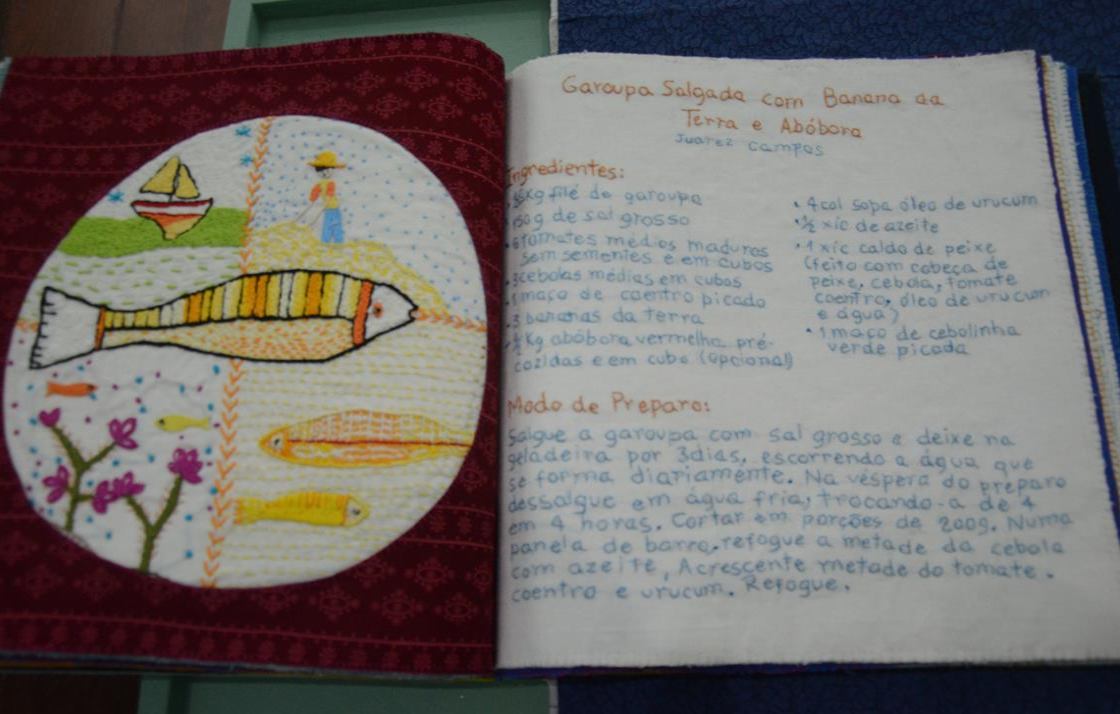 Garoupa Salgada com Banana da
Terra e Abóbora
Juarez Campos
Ingredientes:
kg filé de garoupa
150g de sal grosso
6 tomates médios maduros
sem sementes e em cubos
3 cebolas médias em cubos
1 maço de coentro picado
3 bananas da terra
½ Kg abóbora vermelha pré-
cozidas e em cubo (opcional)
• 4 col sopa óleo de urucum
• ½ xíc de azeite
• 1 xíc caldo de peixe
(feito com cabeça de
peixe, cebola, tomate
coentro, óleo de urucum
e água)
• 1 maço de cebolinha
verde picada
Modo de Preparo:
Salgue a garoupa com sal grosso e deixe na
geladeira por 3 dias, escorrendo a água que
se forma diariamente. Na véspera do preparo
dessalgue em água fria, trocando-a de 4
em 4 horas. Cortar em porções de 200g. Numa
panela de barro, refogue a metade da cebola
com azeite, Acrescente metade do tomate.
coentro e urucum. Refogue.